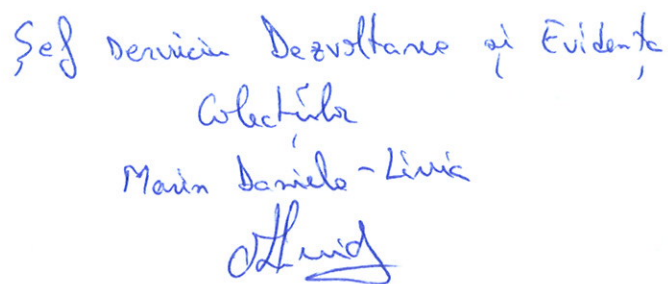 Șef serviciu Dezvoltarea și Evidența
Colecțiilor
Marin Daniela-Livia